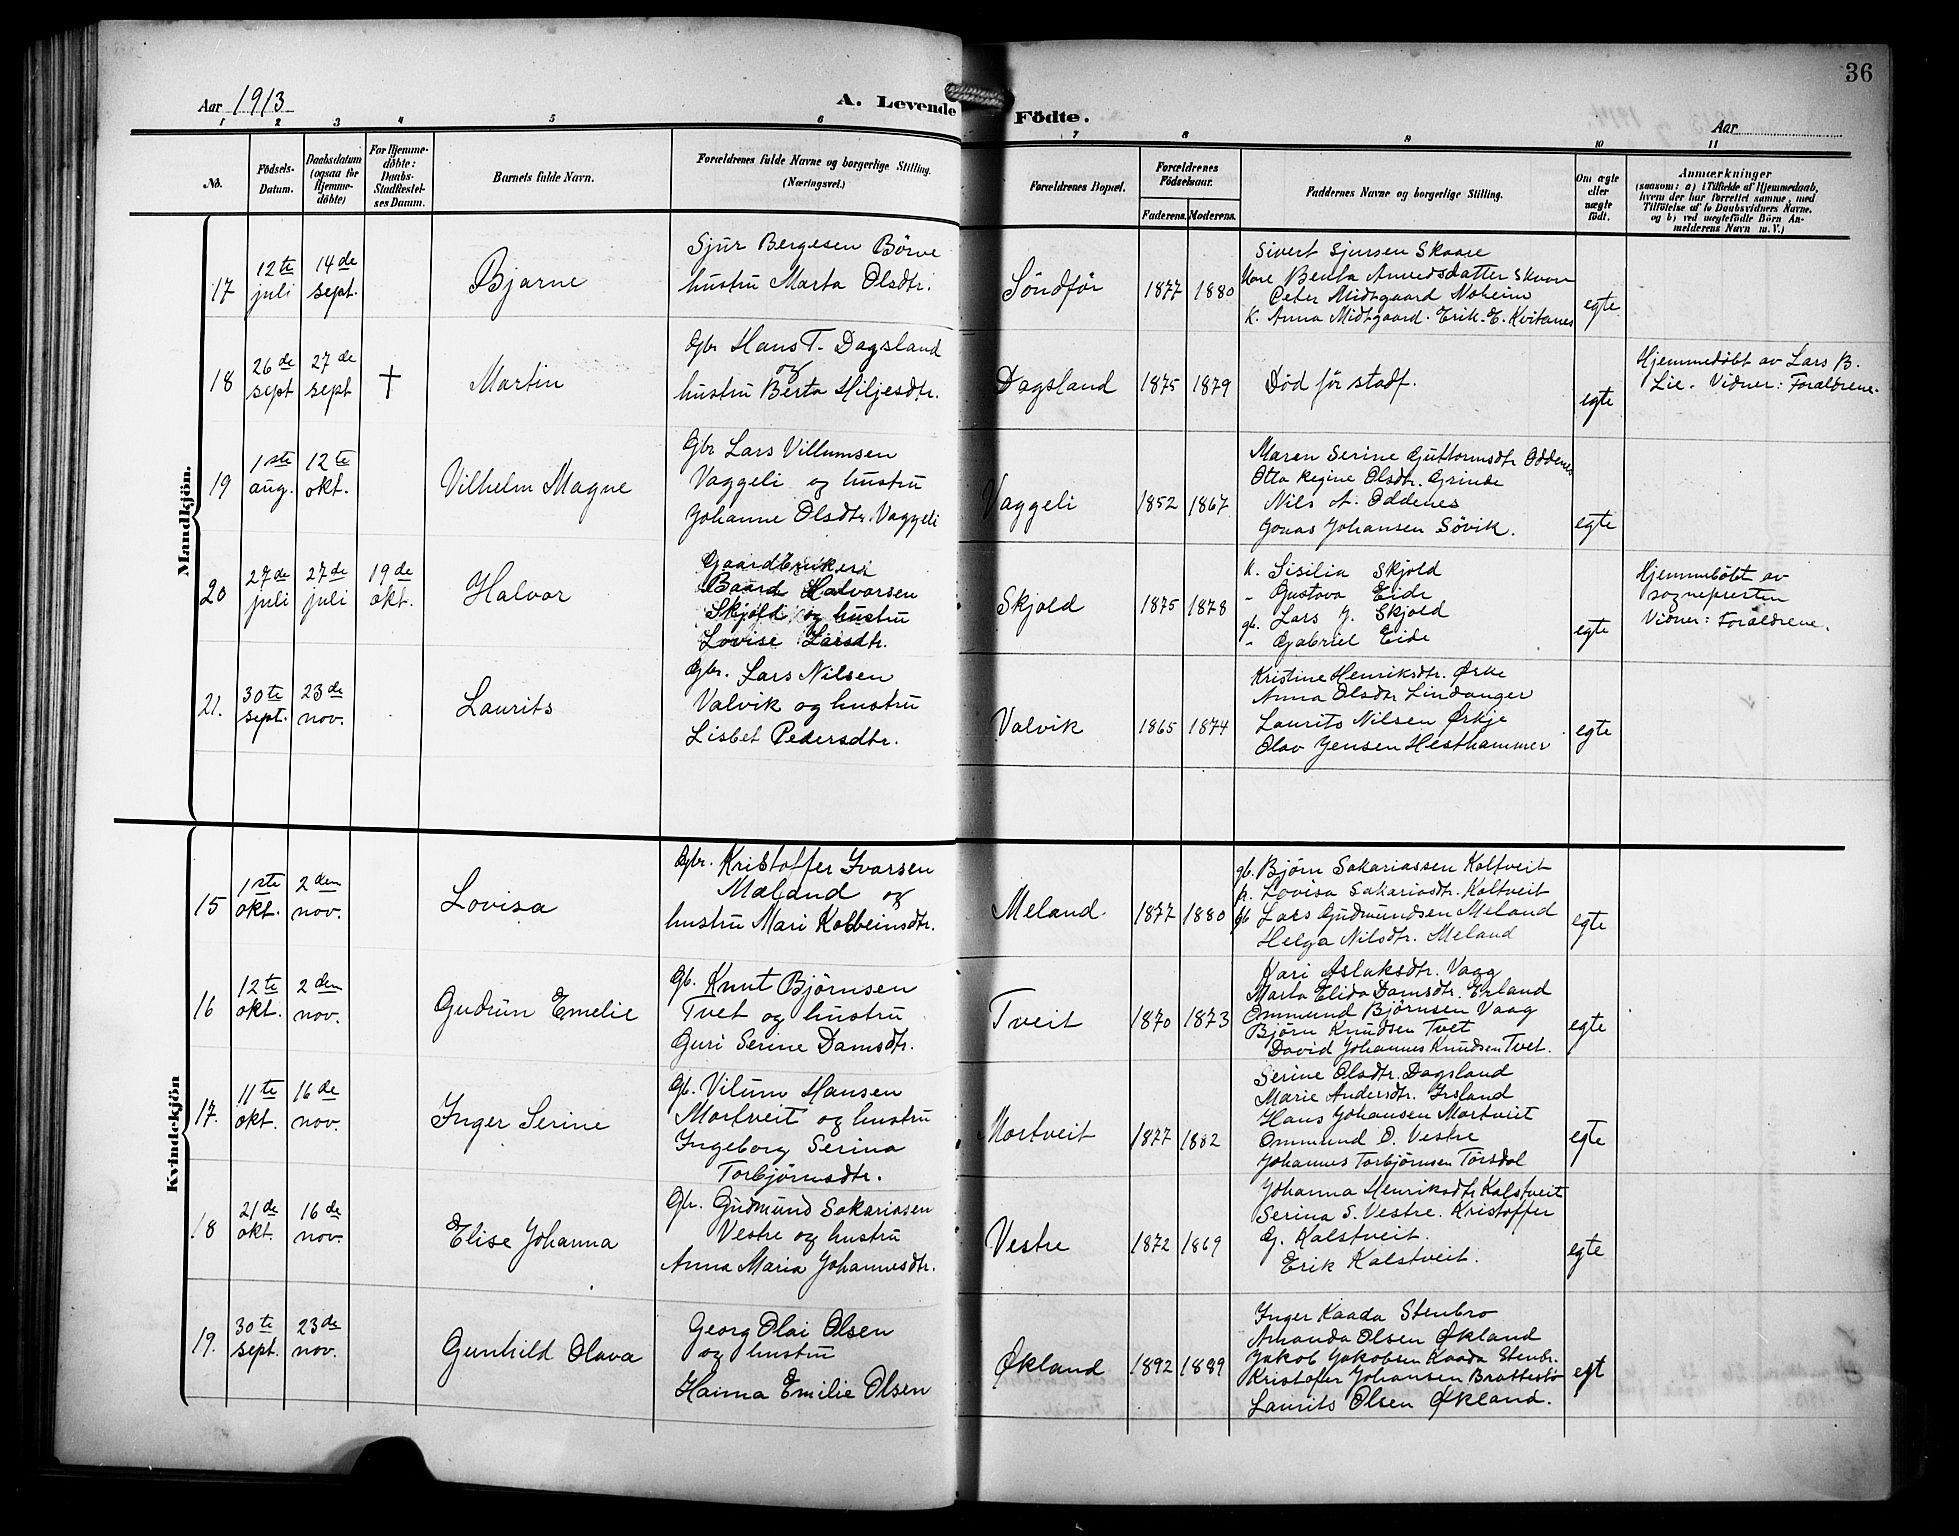 36
Aar 1913
A. Levende Födte.
Aar
1 2 3 4 5 6 7 8 9 10 11
No.
Födsels-Datum.
Daabsdatum (ogsaa for Hjemme-döbte)
For Hjemme-döbte: Daabs-Stadfæstel-ses Datum.
Barnets fulde Navn.
Forældrenes fulde Navne og borgerlige Stilling.
(Næringsvei.)
Forældrenes Bopæl.
Forældrenes Födselsaar.
Faderens. Moderens.
Faddernes Navne og borgerlige Stilling.
Om ægte eller uægte födt.
Anmærkninger
(saasom: a) i Tilfælde af Hjemmedaab,
hvem der har forrettet samme, med
Tilföielse af to Daabsvidners Navne.
og b) ved uægtefödte Börn An-
melderens Navn m. V.)
Mandkjön.
17
12te juli
14de sept.
Bjarne
Sjur Bergesen Börve
hustru Marta Olsdtr.
Söndför
1877 1880
Sivert Sjursen Skaare
Peter Midtgaard Noheim
K. Anna Midtgaard. Erik E. Kvitanes
egte
18
26de sept
27de sept
†
Martin
Gbr Hans T. Dagsland
og
hustru Berta Miljesdtr.
Dagsland
1875 1879
Död för stadf.
egte
Hjemmedöbt av Lars B.
Lie. Vidner: Forældrene.
19
1ste aug.
12te okt.
Vilhelm Magne
Gbr Lars Villumsen
Vaggeli og hustru
Johanne Olsdtr. Vaggeli
Vaggeli
1852 1867
Maren Serine Guttormsdtr Oddenes
Otta Regine Olsdtr. Grinde
Nils A. Oddenes
Jonas Johansen Sövik.
egte
20
27de juli
27de juli
19de okt.
Halvor
Gaardbruker
Baard Halvorsen
Skjold og hustru
Lovise Larsdtr.
Skjold
1875 1878
K. Sisilia Skjold
- Gustava Eide
gb. Lars J. Skjold
- Gabriel Eide
egte
Hjemmedöbt av
sognepresten
Vidner: Forældrene.
21.
30te sept.
23de nov.
Laurits
Gbr. Lars Nilsen
Valvik og hustru
Lisbet Pedersdtr.
Valvik
1865 1874
Kristine Henriksdtr. Ørke
Anna Olsdtr Lindanger
Laurits Nilsen Ørkje
Olav Jensen Hesthammer
egte
Kvindekjön
15
1ste okt.
2den nov.
Lovisa
Gbr. Kristoffer Ivarsen
Mæland og
hustru Mari Kolbeinsdtr.
Meland.
1877 1880
gb. Björn Sakariassen Kaltveit
p. Lovisa Sakariasdtr. Kaltveit
gb Lars Gudmundsen Meland
Helga Nilsdtr. Meland
egte
16
12te okt.
2den nov.
Gudrun Emelie
Gb. Knut Björnsen
Tvet og hustru
Guri Serine Damsdtr.
Tveit
1870 1873
Kari Aslaksdtr. Vaag
Marta Elida Damsdtr. Erland
Ommund Björnsen Vaag
Björn Knudsen Tvet
David Johannes Knudsen Tvet.
egte
17.
11te okt.
16de nov.
Inger Serine
Gb. Vilum Hansen
Mortveit og hustru
Ingeborg Serina
Torbjörnsdtr.
Mortveit
1877 1882
Serine Olsdtr. Dagsland
Marie Andersdtr. Irsland
Hans Johansen Mortveit
Ommund O. Vestre
Johannes Torbjörnsen Törsdal
egte
18
21de okt.
16de nov.
Elise Johanna
Gbr. Gudmund Sakariasen
Vestre og hustru
Anna Maria Johannesdtr.
Vestre
1872 1869
Johanna Henriksdtr Kalstveit
Serina S. Vestre. Kristoffer
G. Kalstveit.
Erik Kalstveit.
egte
19.
30te sept.
23de nov.
Gunhild Olava
Georg Olai Olsen
og hustru
Hanna Emilie Olsen
Økland
1892 1889
Inger Kaada Stenbro
Amanda Olsen Økland
Jakob Jakobsen Kaada Stenbr.
Kristofer Johansen Brattestö
Laurits Olsen Økland.
egt